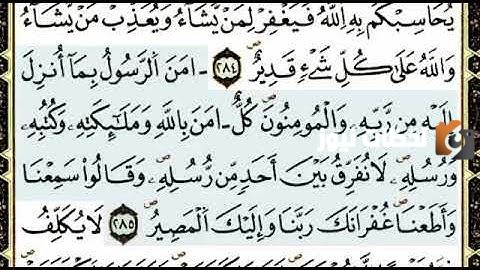 يُحَاسِبْكُم بِهِ اِللَّهُ فَيَغْفِرْ لِمَنْ يَّشَآءُ وَيُعَذِّبْ مَنْ يَّشَآءُ
وَاللَّهُ عَلَىٰ كُلِّ شَےْءٖ قَدِيرٌ ٢٨٤ ـ امَنَ اَلرَّسُولُ بِمَآ أُنزِلَ
إِلَيْهِ مِن رَّبِّهِۦ وَالْمُومِنُونَ كُلٌّ ـ امَنَ بِاللَّهِ وَمَلَٰٓئِكَتِهِۦ وَكُتُبِهِۦ
لحظات نيوز
وَرُسُلِهِۦ لَا نُفَرِّقُ بَيْنَ أَحَدٖ مِّن رُّسُلِهِۦ وَقَالُواْ سَمِعْنَا
وَأَطَعْنَا غُفْرَانَكَ رَبَّنَا وَإِلَيْكَ اَلْمَصِيرُ ٢٨٥ لَا يُكَلِّفُ